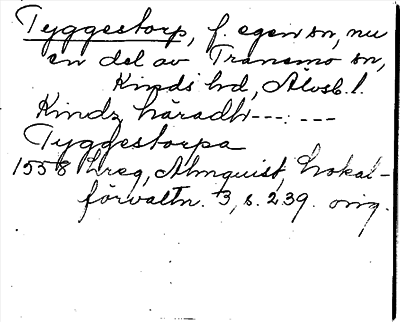 Tyggestorp, f. egen sn, nu
en del av Tranemo sn,
Kinds hd, Älvsb. l.
Kindz häradh---:---
Tyggestorpa
1558 Lreg, Almquist, Lokal-
förvaltn. 3, s. 239. orig.